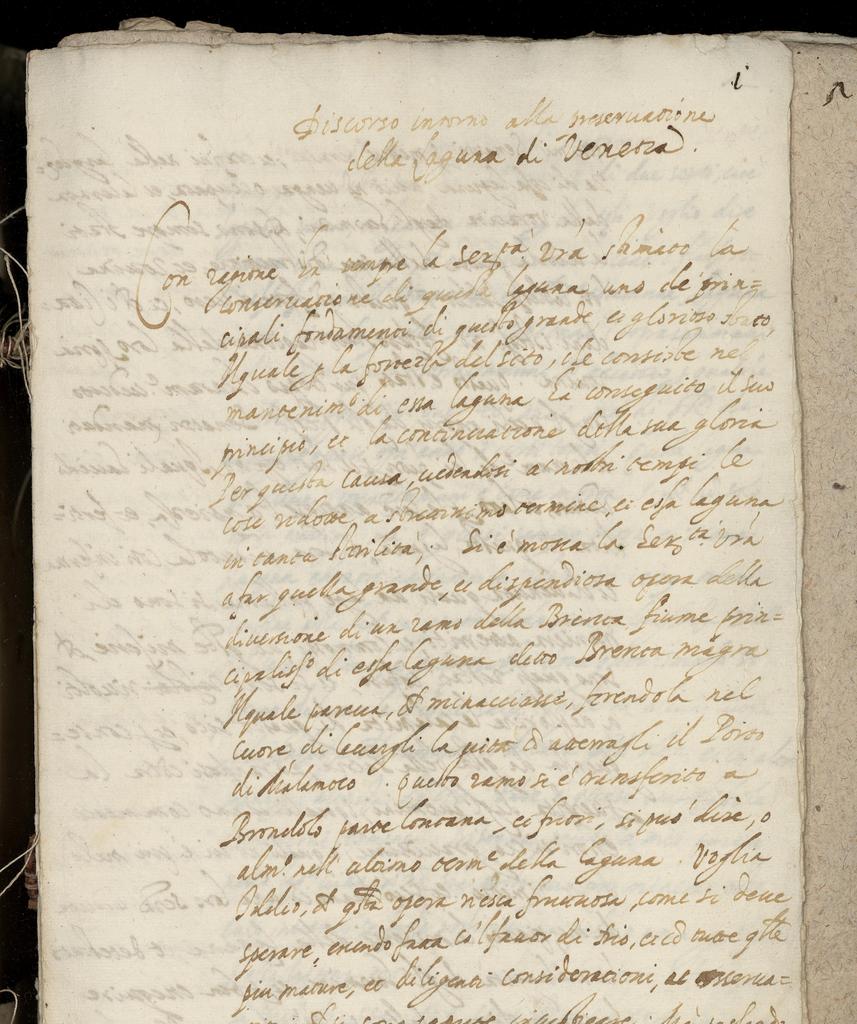 1
Discorso intorno alla preseruatione
della laguna di Venetia.
Con ragione hà sempre la Seren.tà V'rà stimato la
conseruatione di questa laguna uno de prin=
cipali fondamenti di questo grande et glorioso stato,
Il quale p la fortezza del sito, che consiste nel
mantenim.to di essa laguna hà conseguito il suo
principio, et la continuatione della sua gloria
Per questa causa, uedendosi a' nostri tempi le
cose ridotte a strettissimo termine, et essa laguna
in tanta sterilità, Si è mossa la Seren.tà V'rà
a far quella grande, et dispendiosa opera della
diuersione di un ramo della Brenta fiume prin=
cipaliss.o di essa laguna detto Brenta magra
Il quale pareua, ch' minacciasse, ferendola nel
cuore di leuargli la uita et atterragli il Porto
di Malamoco. Questo ramo si è transferito a
Brondolo parte lontana, et fuori, si può dire, o
alm.o nell' ultimo term.e della laguna. Voglia
Iddio, ch' q'sta opera riesca fruttuosa, come si deue
sperare, essendo fatta co'l fauor di Dio, et co' tutte q'lle
piu mature, et diligenti considerationi, et osserua=